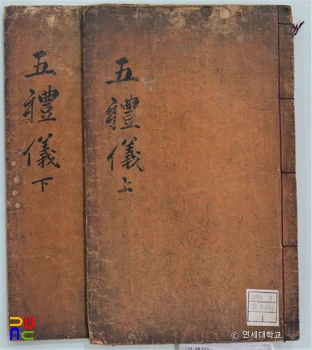 五禮儀 上
五禮儀 下
1
ⓒ 연세대학교